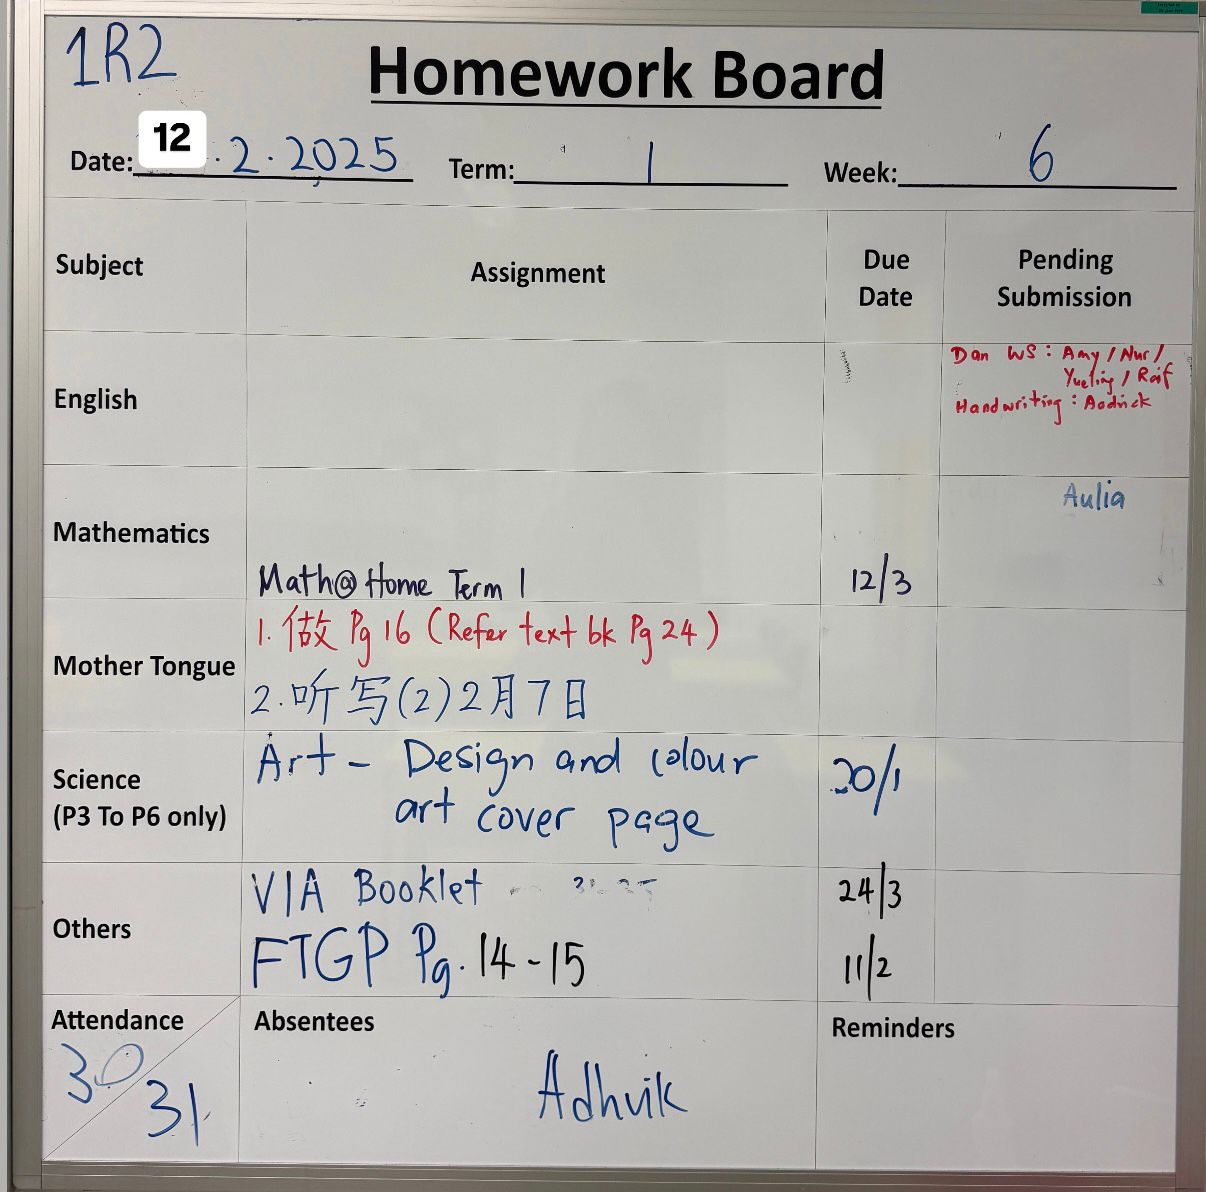 1R2
Homework Board
Date: 12.2.2025 Term: 1 Week: 6
Subject Assignment Due Date Pending Submission
English
Dan WS : Amy / Nur /
Yueting / Raif
Handwriting : Aodrick
Mathematics
Aulia
Math@Home Term 1 12/3
Mother Tongue
1. 做 Pg 16 (Refer text bk Pg 24)
2. 听写(2) 2月7日
Science
(P3 To P6 only)
Art - Design and colour
art cover page
20/1
Others
VIA Booklet 24/3
FTGP Pg. 14-15 11/2
Attendance Absentees Reminders
30/31 Adhvik